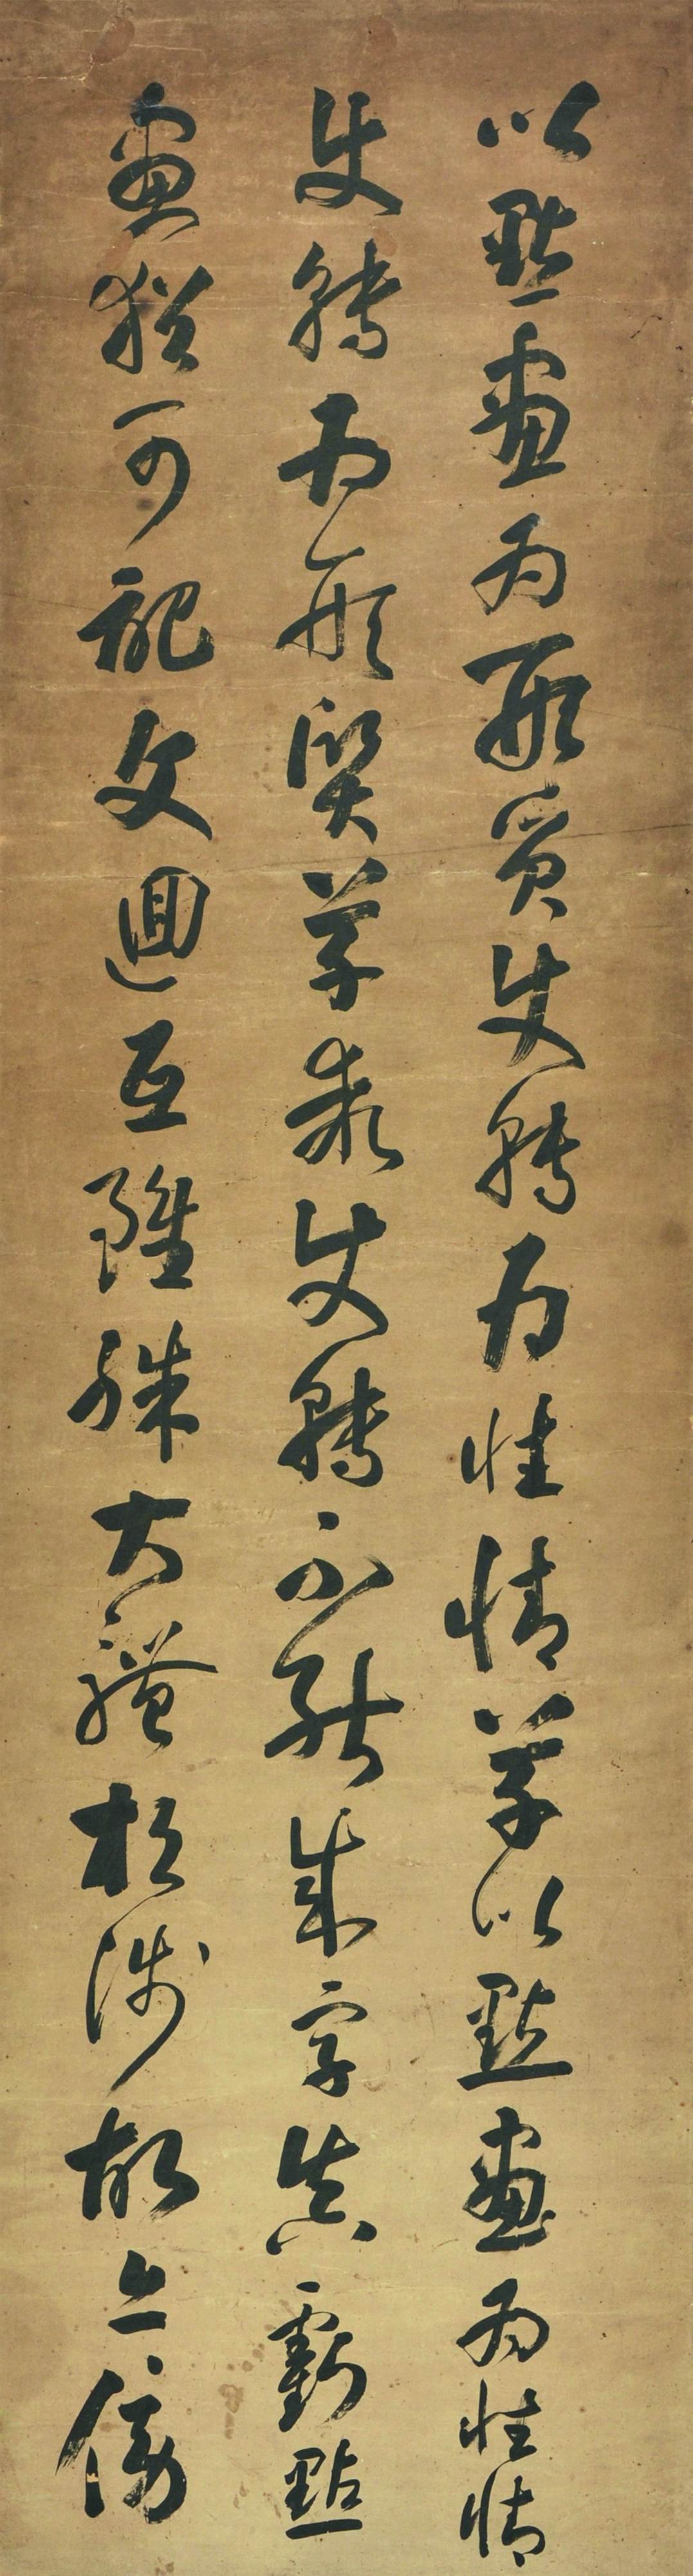 以點畫為形質使轉為性情草以點畫為性情
使轉為形質草乖使轉不能成字真虧點
畫猶可記文迴互雖殊大體相涉故亦傍